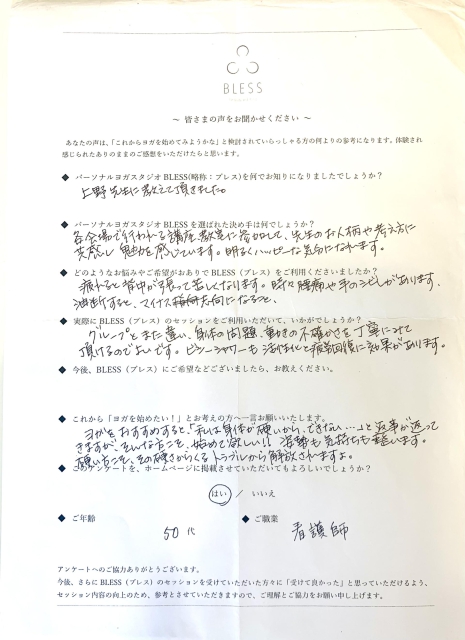 BLESS
～ 皆さまの声をお聞かせください ～
あなたの声は、「これからヨガを始めてみようかな」と検討されていらっしゃる方の何よりの参考になります。体験され
感じられたありのままのご感想をいただけたらと思います。
◆ パーソナルヨガスタジオBLESS(略称：ブレス)を何でお知りになりましたでしょうか？
上野先生に教えて頂きました。
◆ パーソナルヨガスタジオBLESSを選ばれた決め手は何でしょうか？
各会場で行われる講座、教室に参加して、先生のお人柄や考え方に
共感し 魅力を感じています。明るくハッピーな気分になれます。
◆ どのようなお悩みやご希望がおありでBLESS（ブレス）をご利用くださいましたか？
疲れると背中が張って苦しくなります。時々腰痛や手のシビレがあります。
油断すると、マイナス思考になること、
◆ 実際にBLESS（ブレス）のセッションをご利用いただいて、いかがでしょうか？
グループとまた違い、身体の問題、動きの不確かさを丁寧にみて
頂けるのでよいです。ビシーシャワーも活性化と疲労回復に効果があります。
◆ 今後、BLESS（ブレス）にご希望などございましたら、お教えください。
これから「ヨガを始めたい！」とお考えの方へ一言お願いいたします。
ヨガをおすすめすると、「私は身体が硬いから、できない…」と返事が返って
きますが、そんな方こそ、始めて欲しい!! 姿勢も気持ちも整います。
硬い方こそ、その硬さからくるトラブルから解放されますよ。
◆ このアンケートを、ホームページに掲載させていただいてもよろしいでしょうか？
はい / いいえ
◆ ご年齢 ◆ ご職業
50代 看護師
アンケートへのご協力ありがとうございます。
今後、さらにBLESS（ブレス）のセッションを受けていただいた方々に「受けて良かった」と思っていただけるよう、
セッション内容の向上のため、参考とさせていただきますので、ご理解とご協力をお願い申し上げます。